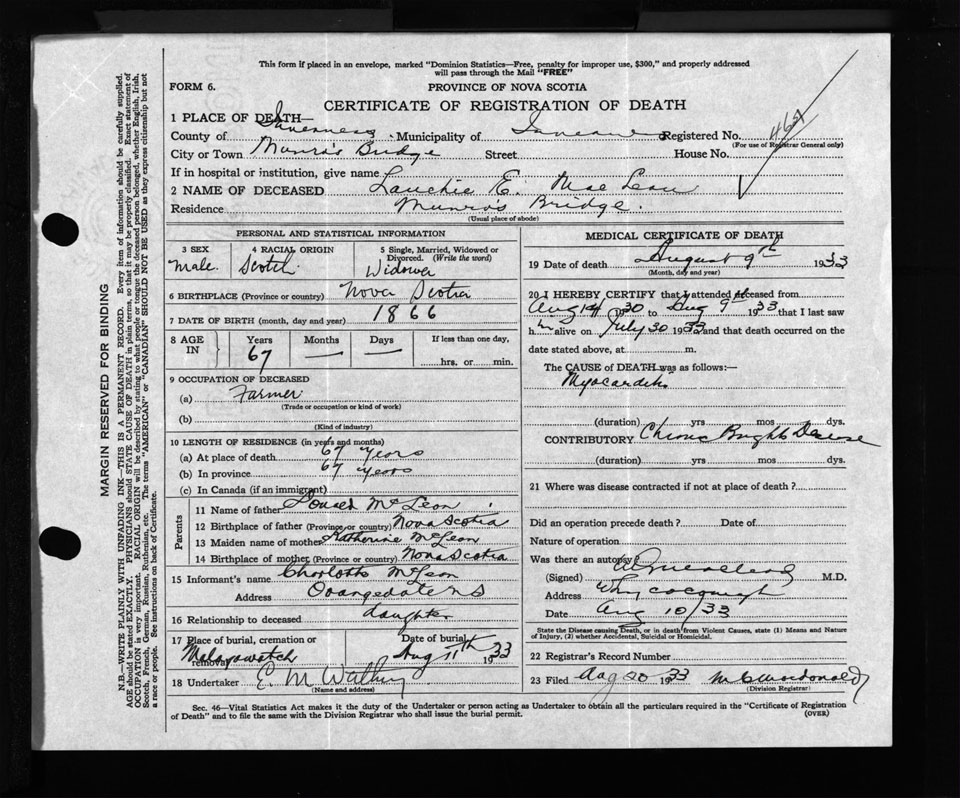 This form if placed in an envelope, marked "Dominion Statistics—Free, penalty for improper use, $300," and properly addressed
will pass through the Mail "FREE"
FORM 6. PROVINCE OF NOVA SCOTIA
CERTIFICATE OF REGISTRATION OF DEATH
1 PLACE OF DEATH—
County of Inverness Municipality of Inverness Registered No.
(For use of Registrar General only)
City or Town Munro's Bridge Street House No.
If in hospital or institution, give name
2 NAME OF DECEASED Lauchie E. MacLean
Residence Munro's Bridge.
(Usual place of abode)
PERSONAL AND STATISTICAL INFORMATION
3 SEX 4 RACIAL ORIGIN 5 Single, Married, Widowed or
Divorced. (Write the word)
Male. Scotch Widower
6 BIRTHPLACE (Province or country) Nova Scotia
7 DATE OF BIRTH (month, day and year) 1866
8 AGE IN Years Months Days If less than one day,
67 — — hrs. or min.
9 OCCUPATION OF DECEASED
(a) Farmer
(Trade or occupation or kind of work)
(b)
(Kind of industry)
10 LENGTH OF RESIDENCE (in years and months)
(a) At place of death 67 years
(b) In province 67 years
(c) In Canada (if an immigrant)
Parents
11 Name of father Donald McLeon
12 Birthplace of father (Province or country) Nova Scotia
13 Maiden name of mother Katherine McLeon
14 Birthplace of mother (Province or country) Nova Scotia
15 Informant's name Charlotte McLeon
Orangedale N S
16 Relationship to deceased daughter
17 Place of burial, cremation or removal Date of burial
Malagawatch Aug 11th 1933
18 Undertaker E. M
(Name and address)
MEDICAL CERTIFICATE OF DEATH
19 Date of death August 9th 1933
(Month, day and year)
20 I HEREBY CERTIFY that I attended deceased from
Aug 14 1930 to Aug 9th 1933 that I last saw
him alive on July 30 1933 and that death occurred on
date stated above, at m.
The CAUSE of DEATH was as follows:—
Myocarditis
(duration) yrs mos dys.
CONTRIBUTORY Chronic Brights Disease
(duration) yrs mos dys.
21 Where was disease contracted if not at place of death?
Did an operation precede death? Date of
Nature of operation
Was there an autopsy?
(Signed) M.D.
Address Whycocomagh
Date Aug 10/33
State the Disease causing Death, or in death from Violent Causes, state (1) Means and Nature
of Injury, (2) whether Accidental, Suicidal or Homicidal.
22 Registrar's Record Number
23 Filed Aug 20 1933 M C Macdonald
(Division Registrar)
Sec. 46—Vital Statistics Act makes it the duty of the Undertaker or person acting as Undertaker to obtain all the particulars required in the "Certificate of Registration
of Death" and to file the same with the Division Registrar who shall issue the burial permit. (OVER)
MARGIN RESERVED FOR BINDING
N.B.—WRITE PLAINLY WITH UNFADING INK—THIS IS A PERMANENT RECORD. Every item of information should be carefully supplied.
AGE should be stated EXACTLY. PHYSICIANS should STATE CAUSE OF DEATH in plain terms, so that it may be properly classified. Exact statement of
OCCUPATION is very important. RACIAL ORIGIN will be described by stating to what people or tongue the deceased person belonged, whether English, Irish,
Scotch, French, German, Russian, Ruthenian, etc. The terms "AMERICAN" or "CANADIAN" SHOULD NOT BE USED as they express citizenship but not
a race or people. See instructions on back of Certificate.